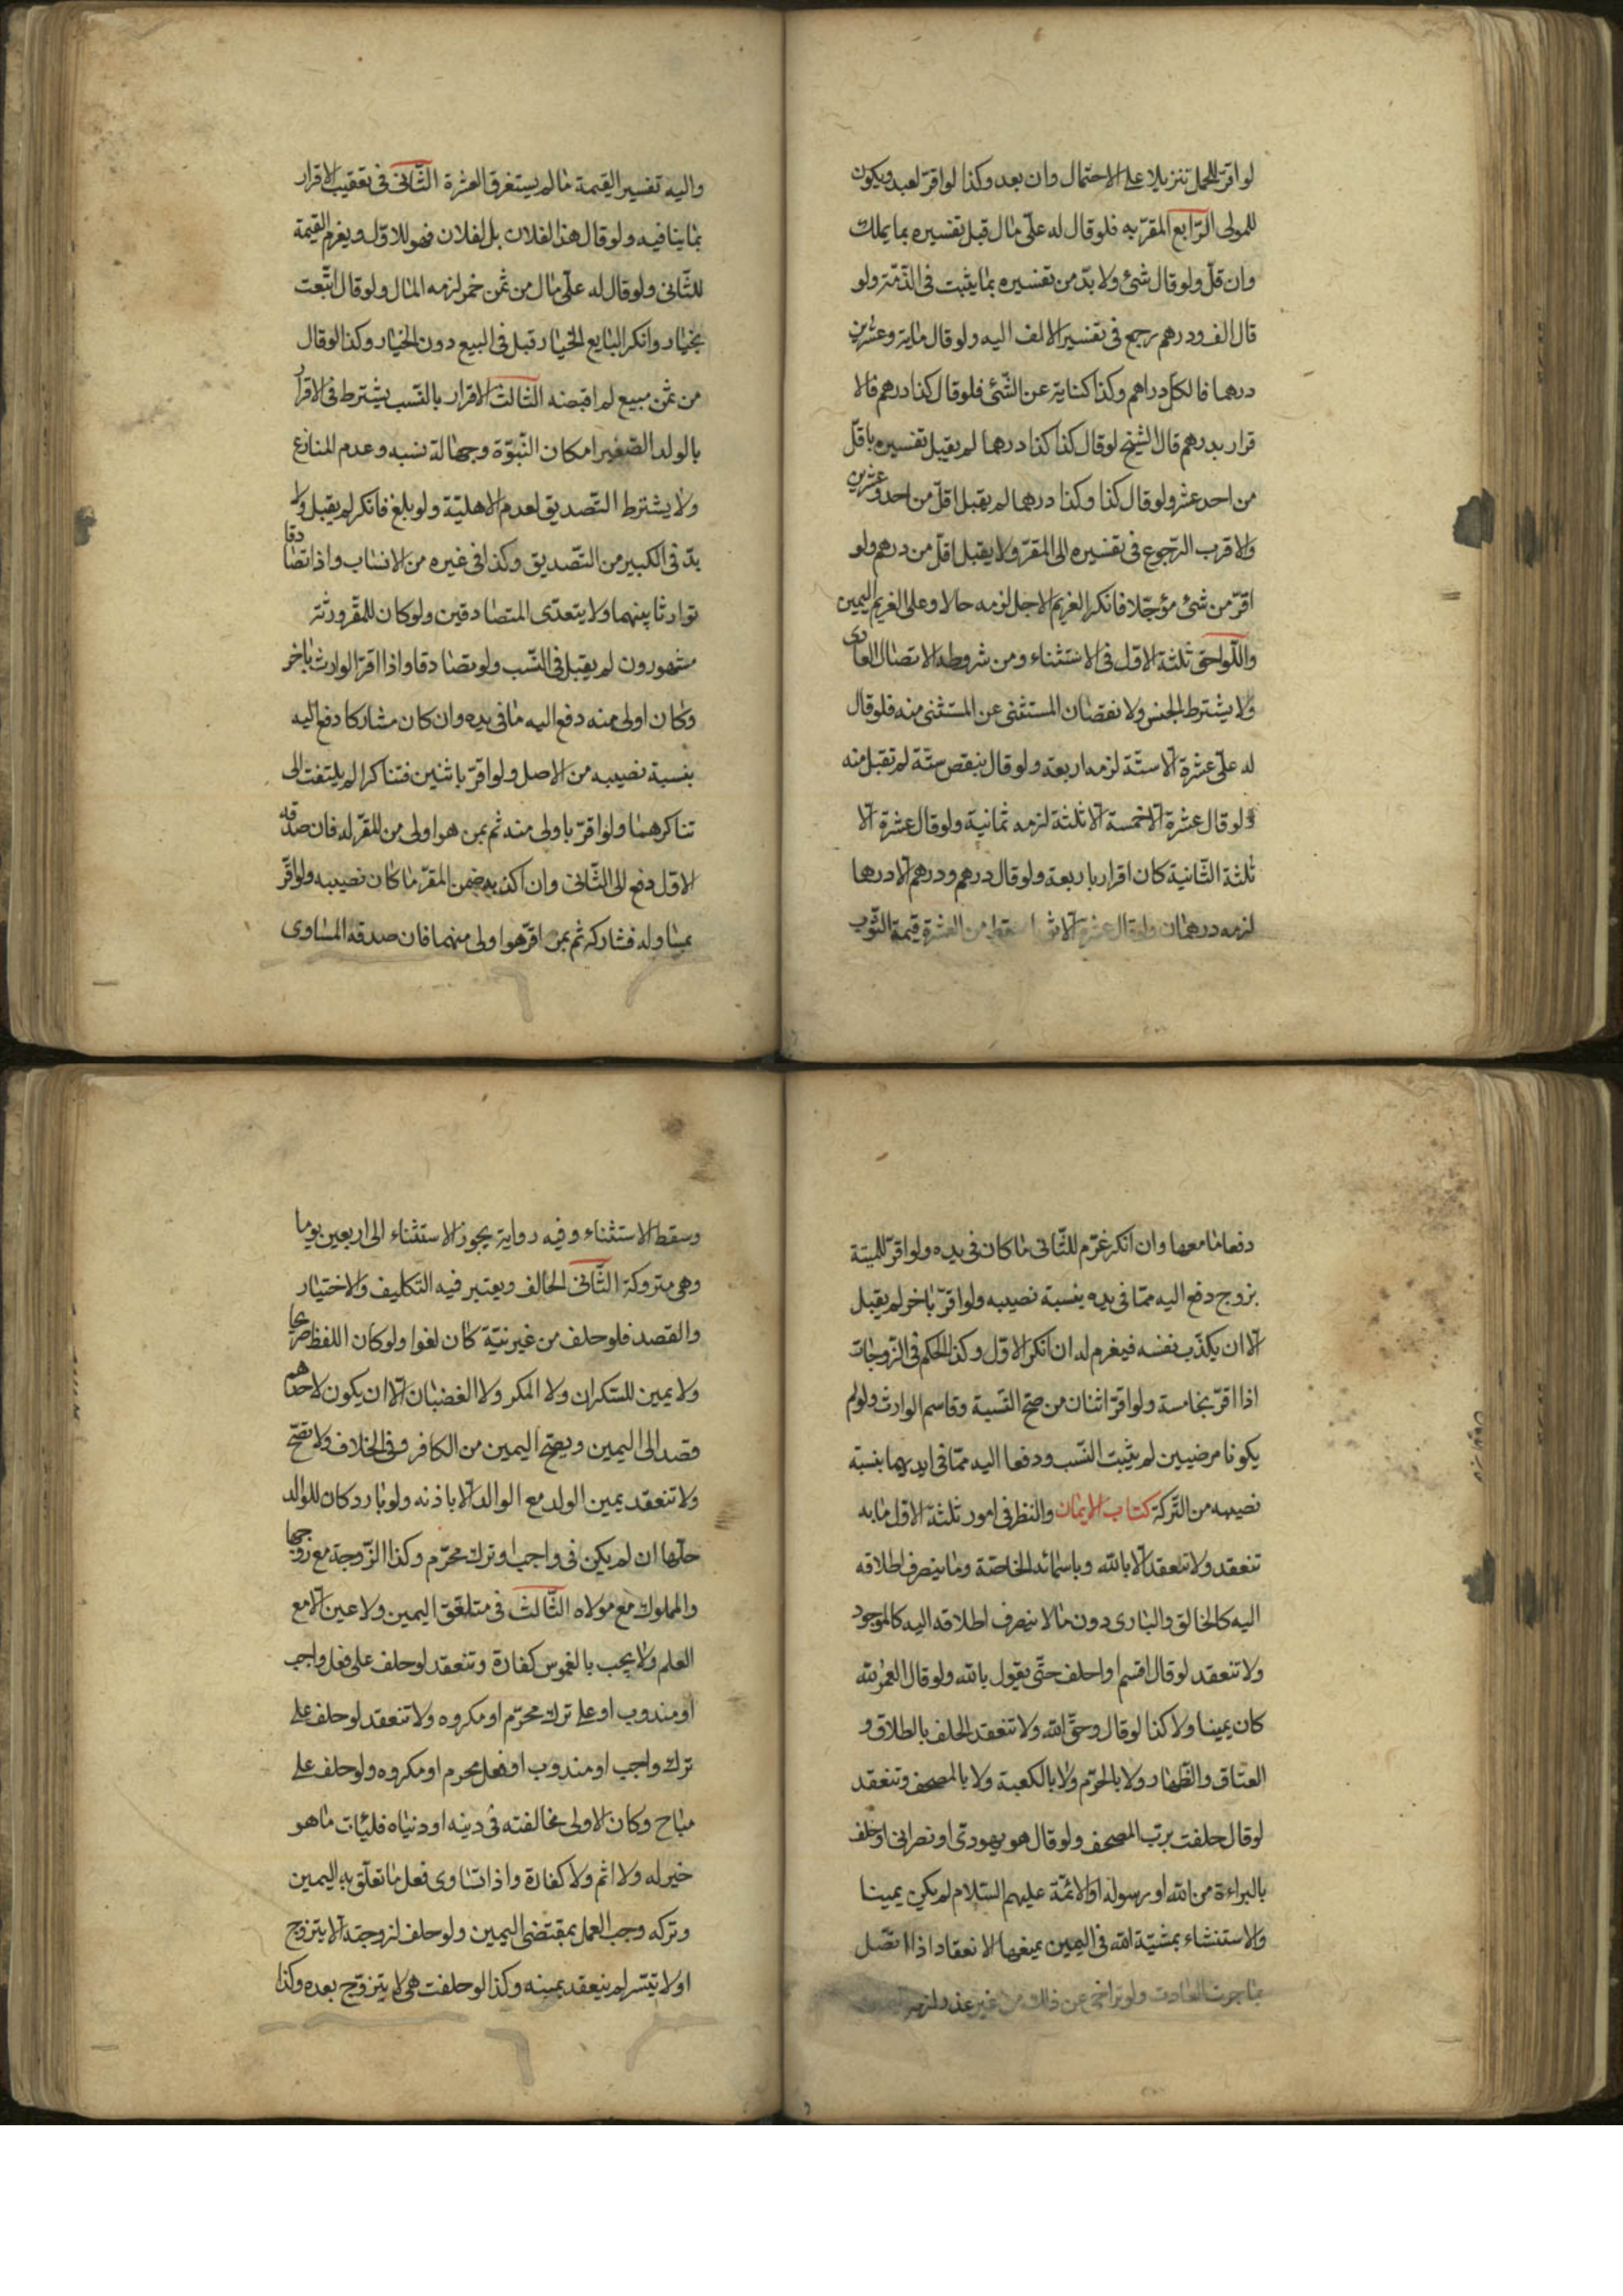 لو اقرّ للحمل تنزيلا على الاحتمال وان بعد وكذا لو اقرّ لعبد ويكون
للمولى الرّابع المقرّ به فلو قال له علىّ مال قبل تفسيره بما يملك
وان قلّ ولو قال شئ ولا بدّ من تفسيره بما يثبت فى الذّمّة ولو
قال الف ودرهم رجع فى تفسير الالف اليه ولو قال ماية وعشرين
درهما فالكلّ دراهم وكذا كناية عن الشّئ فلو قال كذا درهم فالا
قرار بدرهم قال الشيخ لو قال كذا كذا درهما لم يقبل تفسيره باقلّ
من احد عشر ولو قال كذا وكذا درهما لم يقبل اقلّ من احد وعشرين
والاقرب الرّجوع فى تفسيره الى المقرّ ولا يقبل اقلّ من درهم ولو
اقرّ من شئ مؤجّلا فانكر الغريم الاجل لزمه حالا وعلى الغريم اليمين
واللّواحق ثلثة الاوّل فى الاستثناء ومن شروطه الاتصال العادى
ولا يشترط الجنس ولا نقصان المستثنى عن المستثنى منه فلو قال
له علىّ عشرة الّا ستّة لزمه اربعة ولو قال ينقص ستّة لم تقبل منه
ولو قال عشرة الّا خمسة الّا ثلثة لزمه ثمانية ولو قال عشرة الّا
ثلثة الثّانية كان اقرارا باربعة ولو قال درهم ودرهم الّا درهما
لزمه درهمان ولو قال عشرة الّا ثوبا سقط من العشرة قيمة الثّوب
واليه تفسير القيمة ما لم يستغرق العشرة الثّانى فى تعقيب الاقرار
بما ينافيه ولو قال هذا لفلان بل لفلان فهو للاوّل ويغرم القيمة
للثّانى ولو قال له علىّ مال من ثمن خمر لزمه المال ولو قال ابتعت
بخيار وانكر البايع الخيار قبل فى البيع دون الخيار وكذا لو قال
من ثمن مبيع لم اقبضه الثّالث الاقرار بالنّسب يشترط فى الاقرار
بالولد الصّغير امكان النّبوّة وجهالة نسبه وعدم المنازع
ولا يشترط التّصديق لعدم الاهليّة ولو بلغ فانكر لم يقبل ولا
بدّ فى الكبير من التّصديق وكذا فى غيره من الانساب واذا تصادقا
توارثا بينهما ولا يتعدّى المتصادقين ولو كان للمقرّ ورثة
مشهورون لم يقبل فى النّسب ولو تصادقا واذا اقرّ الوارث باخر
وكان اولى منه دفع اليه ما فى يده وان كان مشاركا دفع اليه
بنسبة نصيبه من الاصل ولو اقرّ باثنين فتناكرا لم يلتفت الى
تناكرهما ولو اقرّ باولى منه ثم بمن هو اولى من المقرّ له فان صدّقه
الاوّل دفع الى الثّانى وان اكذبه ضمن المقرّ ما كان نصيبه ولو اقرّ
بمساو له فشاركه ثم بمن اقرّ هو اولى منهما فان صدقه المساوى
دفعا ما معهما وان انكر غرّم للثّانى ما كان فى يده ولو اقرّ للميتة
بزوج دفع اليه ممّا فى يده بنسبة نصيبه ولو اقرّ باخر لم يقبل
الّا ان يكذّب نفسه فيغرم له ان انكر الاوّل وكذا الحكم فى الزّوجات
اذا اقرّ بخامسة ولو اقرّ اثنان من صحّ النّسبة وقاسم الوارث ولو لم
يكونا مرضيين لم يثبت النّسب ودفعا اليه ممّا فى ايديهما بنسبة
نصيبه من التّركة كتاب الايمان والنظر فى امور ثلثة الاوّل ما به
تنعقد ولا تنعقد الّا بالله وباسمائه الخاصّة وما ينصرف اطلاقه
اليه كالخالق والبارى دون ما لا ينصرف اطلاقه اليه كالموجود
ولا تنعقد لو قال اقسم او احلف حتّى يقول بالله ولو قال لعمر الله
كان يمينا ولا كذا لو قال وحقّ الله ولا تنعقد الحلف بالطلاق و
العتاق والظّهار ولا بالحرّم ولا بالكعبة ولا بالمصحف وتنعقد
لو قال حلفت بربّ المصحف ولو قال هو يهودىّ او نصرانى او حلف
بالبراءة من الله او رسوله او الائمّة عليهم السّلام لم يكن يمينا
والاستثناء بمشيّة الله فى اليمين يمنعها الانعقاد اذا اتصل
بما جرت العادت ولو تراخى عن ذلك من غير عذر لزمه اليمين
وسقط الاستثناء وفيه رواية بجوز الاستثناء الى اربعين يوما
وهى متروكة الثّانى الحالف ويعتبر فيه التّكليف والاختيار
والقصد فلو حلف من غير نيّة كان لغوا ولو كان اللفظ صريحا
ولا يمين للسّكران ولا المكر ولا الغضبان الّا ان يكون لاحدهم
قصد الى اليمين ويصحّ اليمين من الكافر وفى الخلاف ولا تصحّ
ولا تنعقد يمين الولد مع الوالد الّا باذنه ولو بادر كان للوالد
حلّها ان لم يكن فى واجب او ترك محرّم وكذا الزّوجة مع زوجها
والمملوك مع مولاه الثّالث فى متلعّق اليمين ولا عين الّا مع
العلم ولا يجب بالغموس كفارة وتنعقد لو حلف على فعل واجب
او مندوب او على ترك محرّم او مكروه ولا تنعقد لو حلف على
ترك واجب او مندوب او فعل محرم او مكروه ولو حلف على
مباح وكان الاولى مخالفته فى دينه او دنياه فليأت ما هو
خير له ولا اثم ولا كفارة واذا تساوى فعل ما تعلّق به اليمين
وتركه وجب العمل بمقتضى اليمين ولو حلف لزوجته الّا يتزوج
او لا يتسّر لم ينعقد يمينه وكذا لو حلفت هى لا يتزوّج بعده وكذا